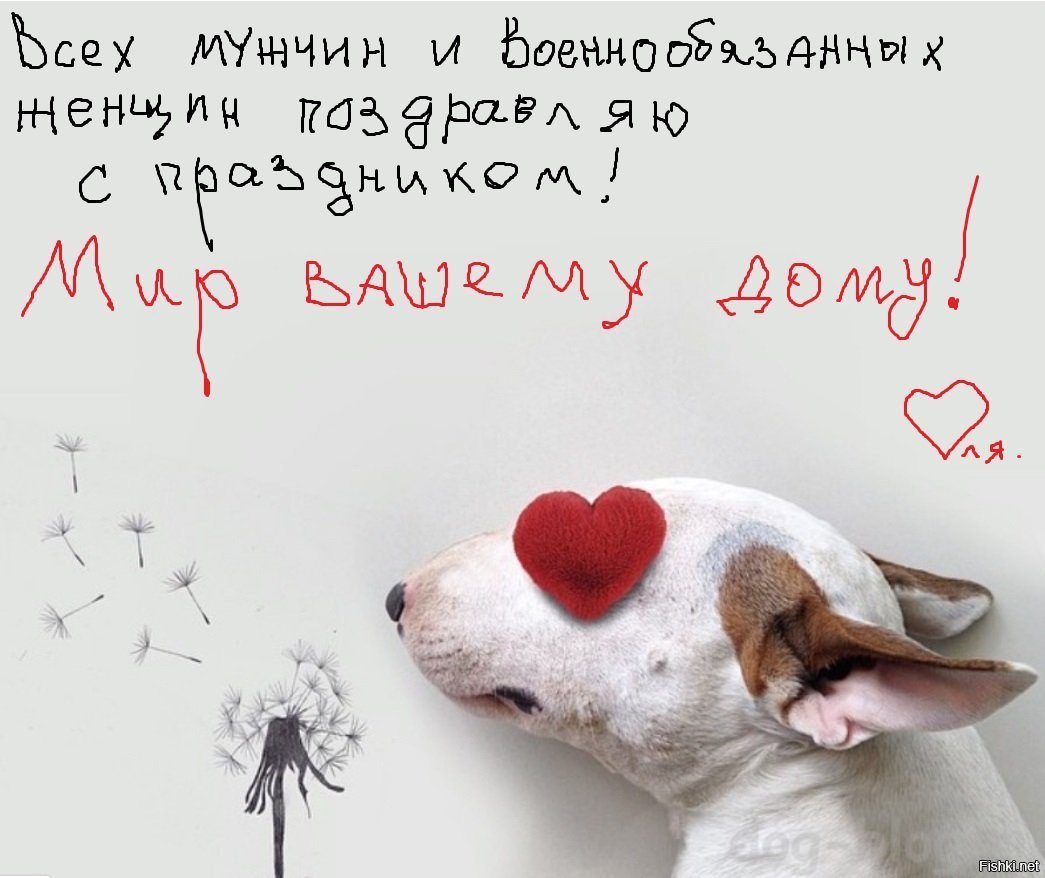 Всех мужчин и военнообязанных
женщин поздравляю
с праздником!
Мир вашему дому!
ля.
Fishki.net